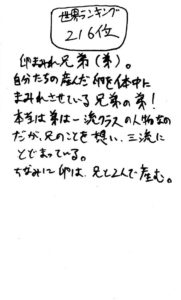 世界ランキング
216位
卵まみれ兄弟(弟)。
自分たちの産んだ卵を体中に
まみれさせている兄弟の弟!
本当は弟は一流クラスの人物なの
だが、兄のことを想い、三流に
とどまっている。
ちなみに卵は、兄と2人で産む。